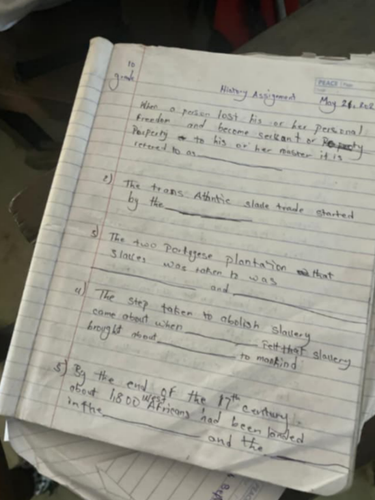 10
grade
History Assignment
May 21, 202
When a person lost his or her personal
Freedom and become servant or
Property to his or her master it is
refered to as
2) The trans Atlantic slade trade started
by the
3) The two Portgese plantation that
slaves was taken to was
and
4) The step taken to abolish slavery
come about when felt that slavery
brought about to mankind
5) By the end of the 17th century
about 1,800 Africans had been landed
in the and the